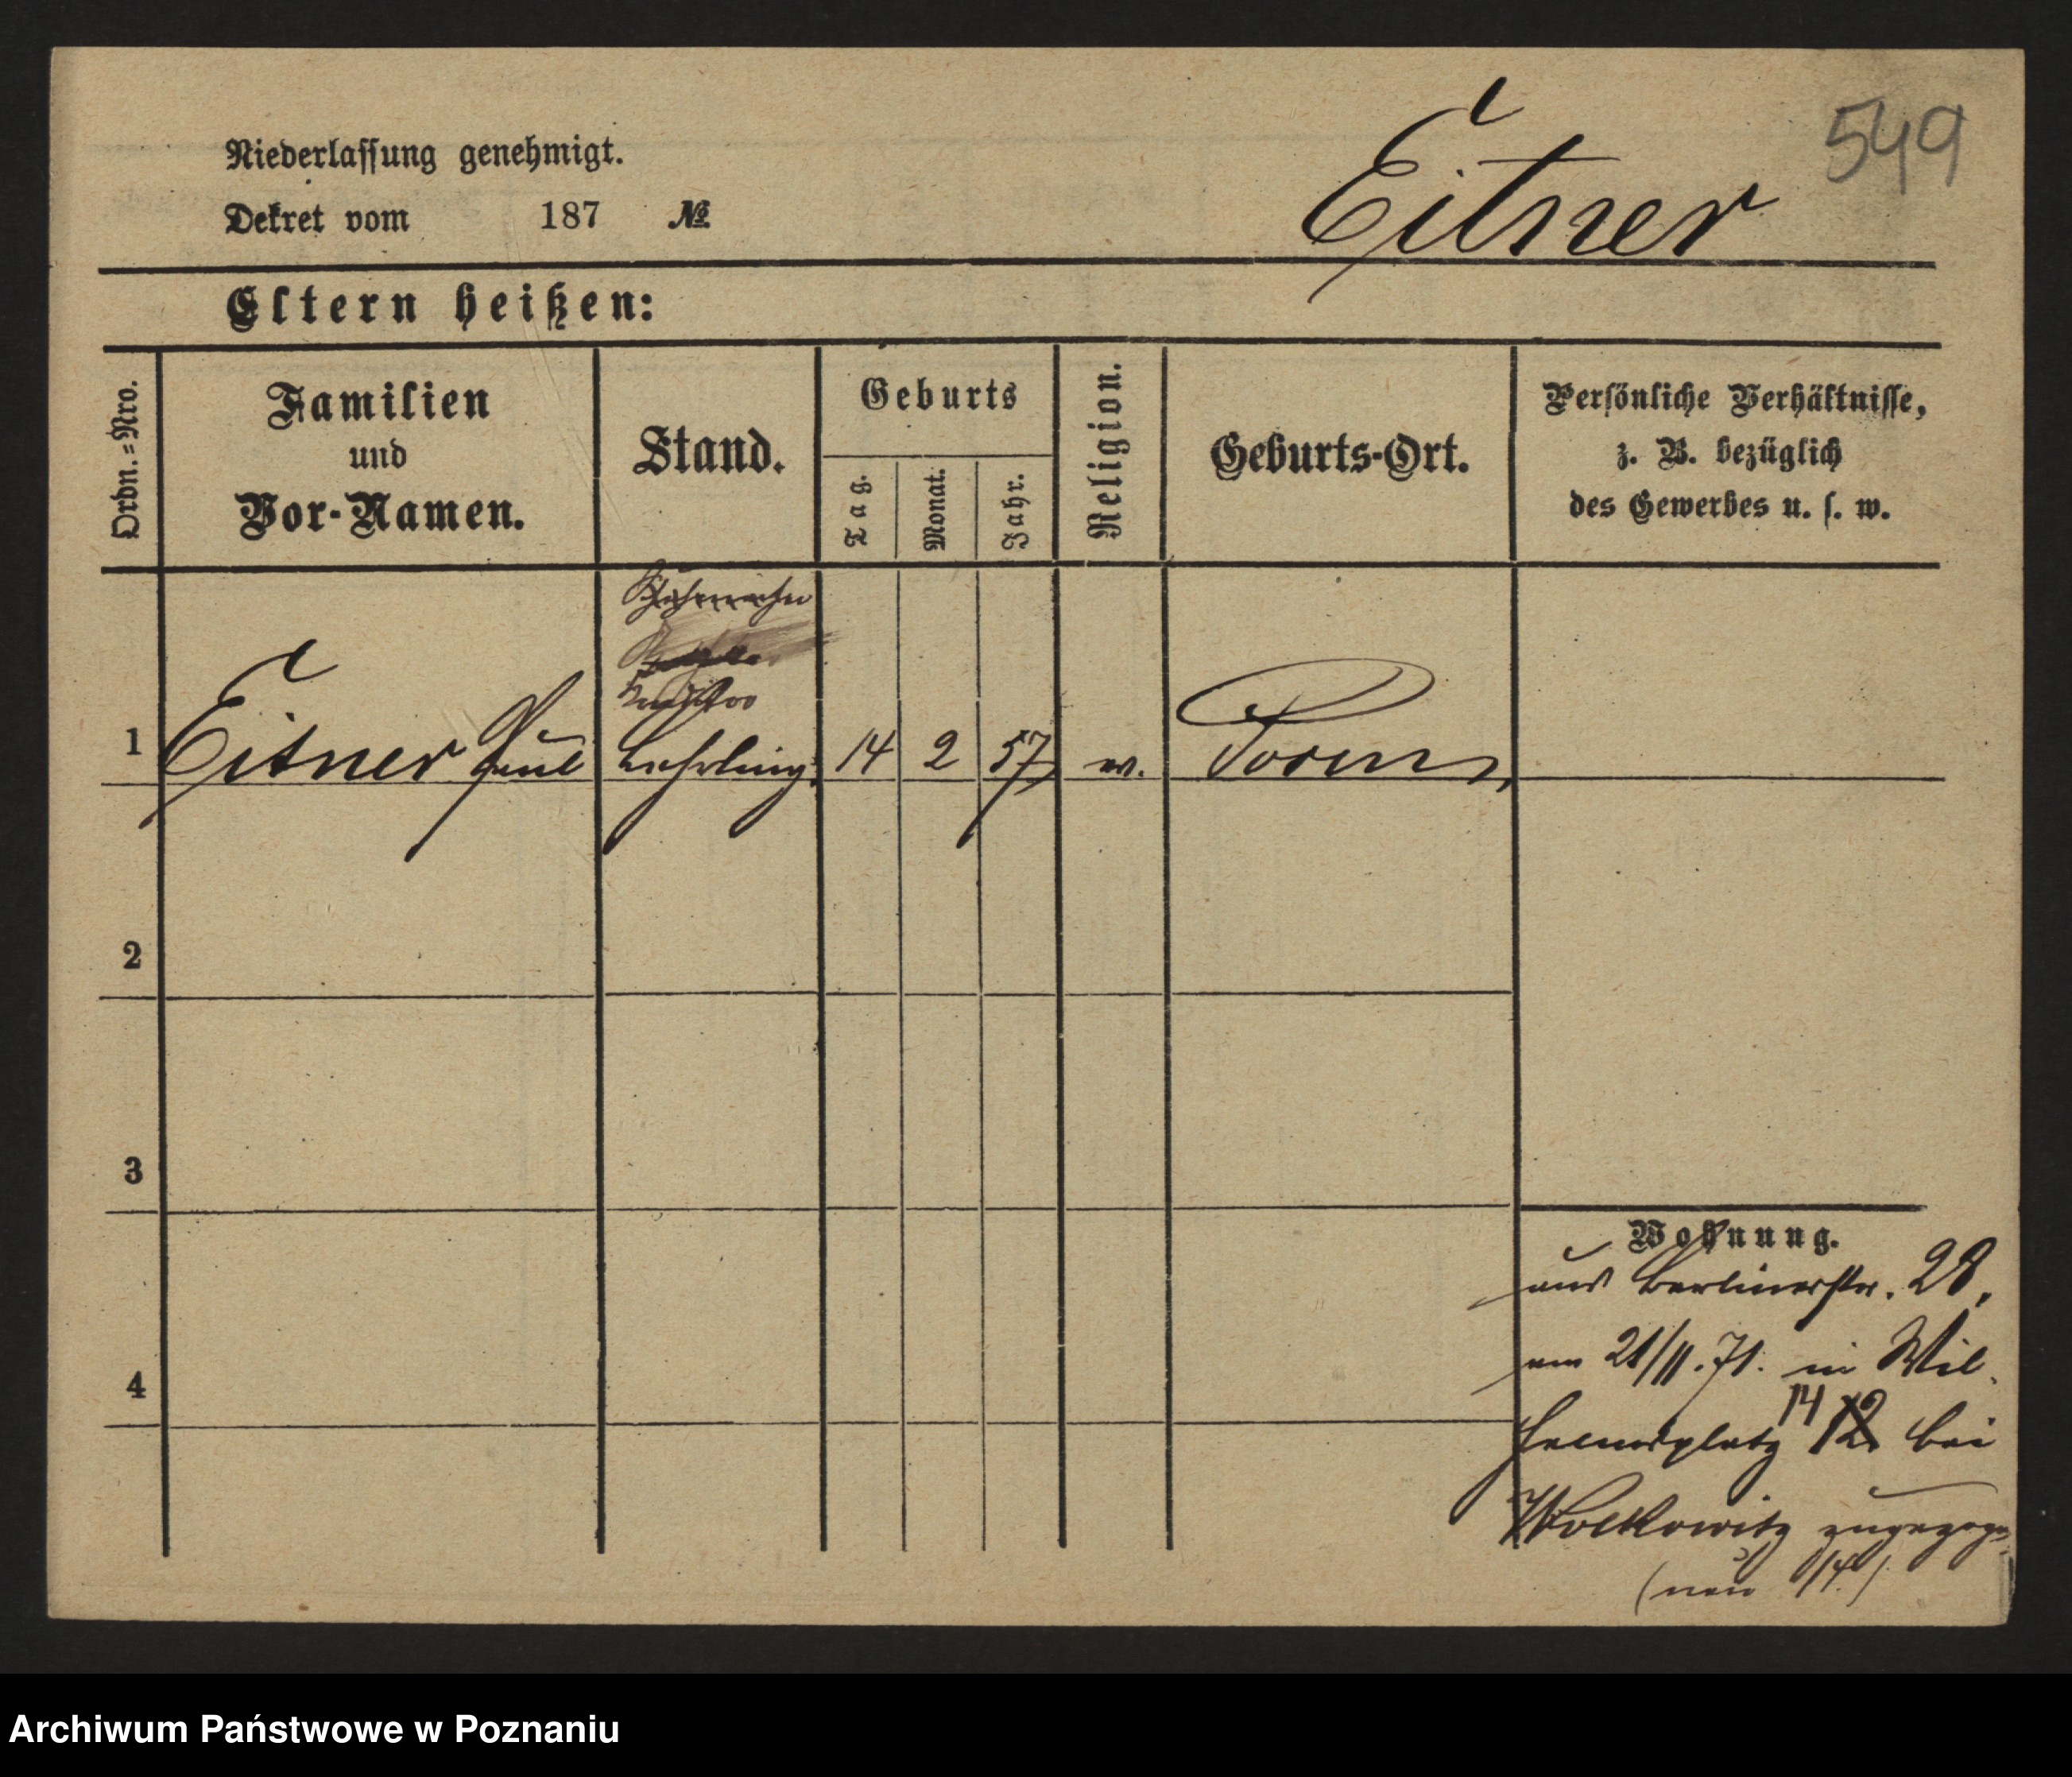 549
Eitner
Niederlassung genehmigt.
Dekret vom 187 №
Eltern heißen:
Ordn.=Nro.
Familien
und
Vor-Namen.
Stand.
Geburts
Tag.
Monat.
Jahr.
Religion.
Geburts-Ort.
Persönliche Verhältnisse,
z. B. bezüglich
des Gewerbes u. s. w.
1 Eitner Paul Lehrling. 14 2 57 ev. Posen,
2
3
4
Wohnung.
aus Berlinerstr. 28,
am 21/11. 71. in Wil-
helmsplatz 14 12 bei
Wolkowitz zugezogen
(neu
Archiwum Państwowe w Poznaniu